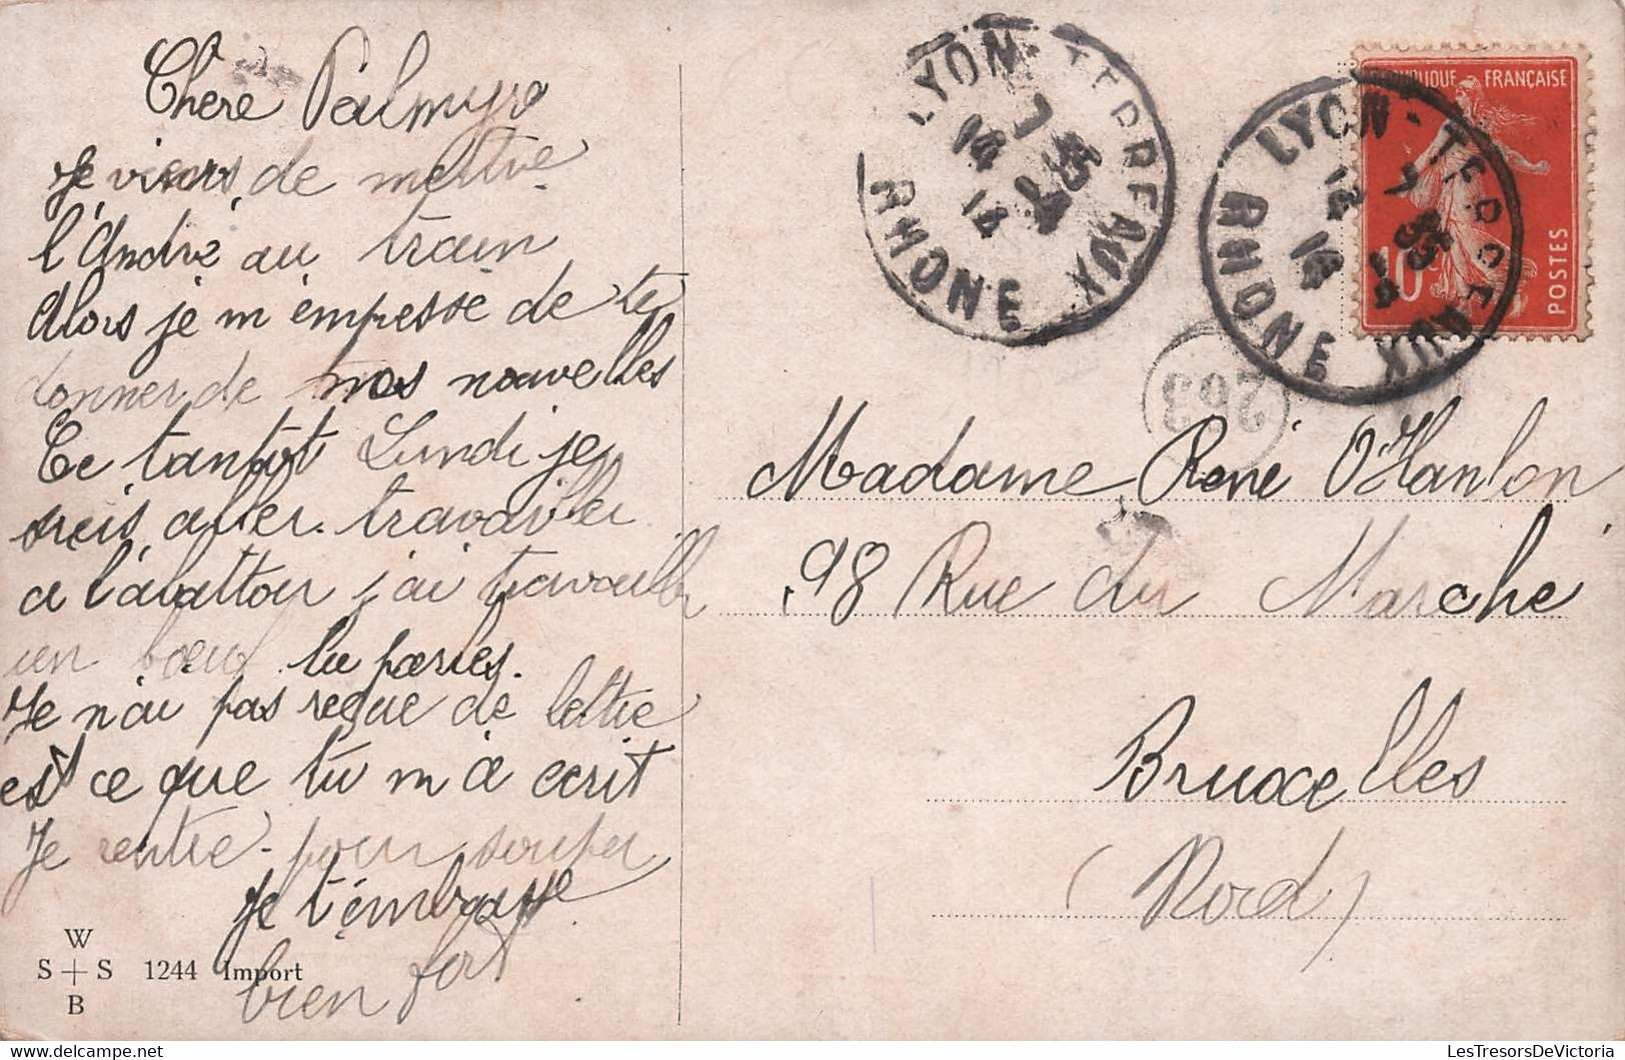 Chere Palmyre
Je viens de mettre
l'André au train
Alors je m'empesse de te
donner de mes nouvelles
Ce tantot Lundi je
suis aller travailler
a l'abattoir j'ai travailler
un boeuf tu parles.
Je n'ai pas reçue de lettre
est ce que tu m'a ecrit
Je rentre pour souper
Je t'embrasse
bien fort
W
S S 1244 Import
B
LYON-TERREAUX
RHONE
LYON-TERREAUX
RHONE
REPUBLIQUE FRANÇAISE
10c
POSTES
263
Madame René O'Hanlon
98 Rue du Marché
Bruxelles
(Nord)
LesTresorsDeVictoria
www.delcampe.net